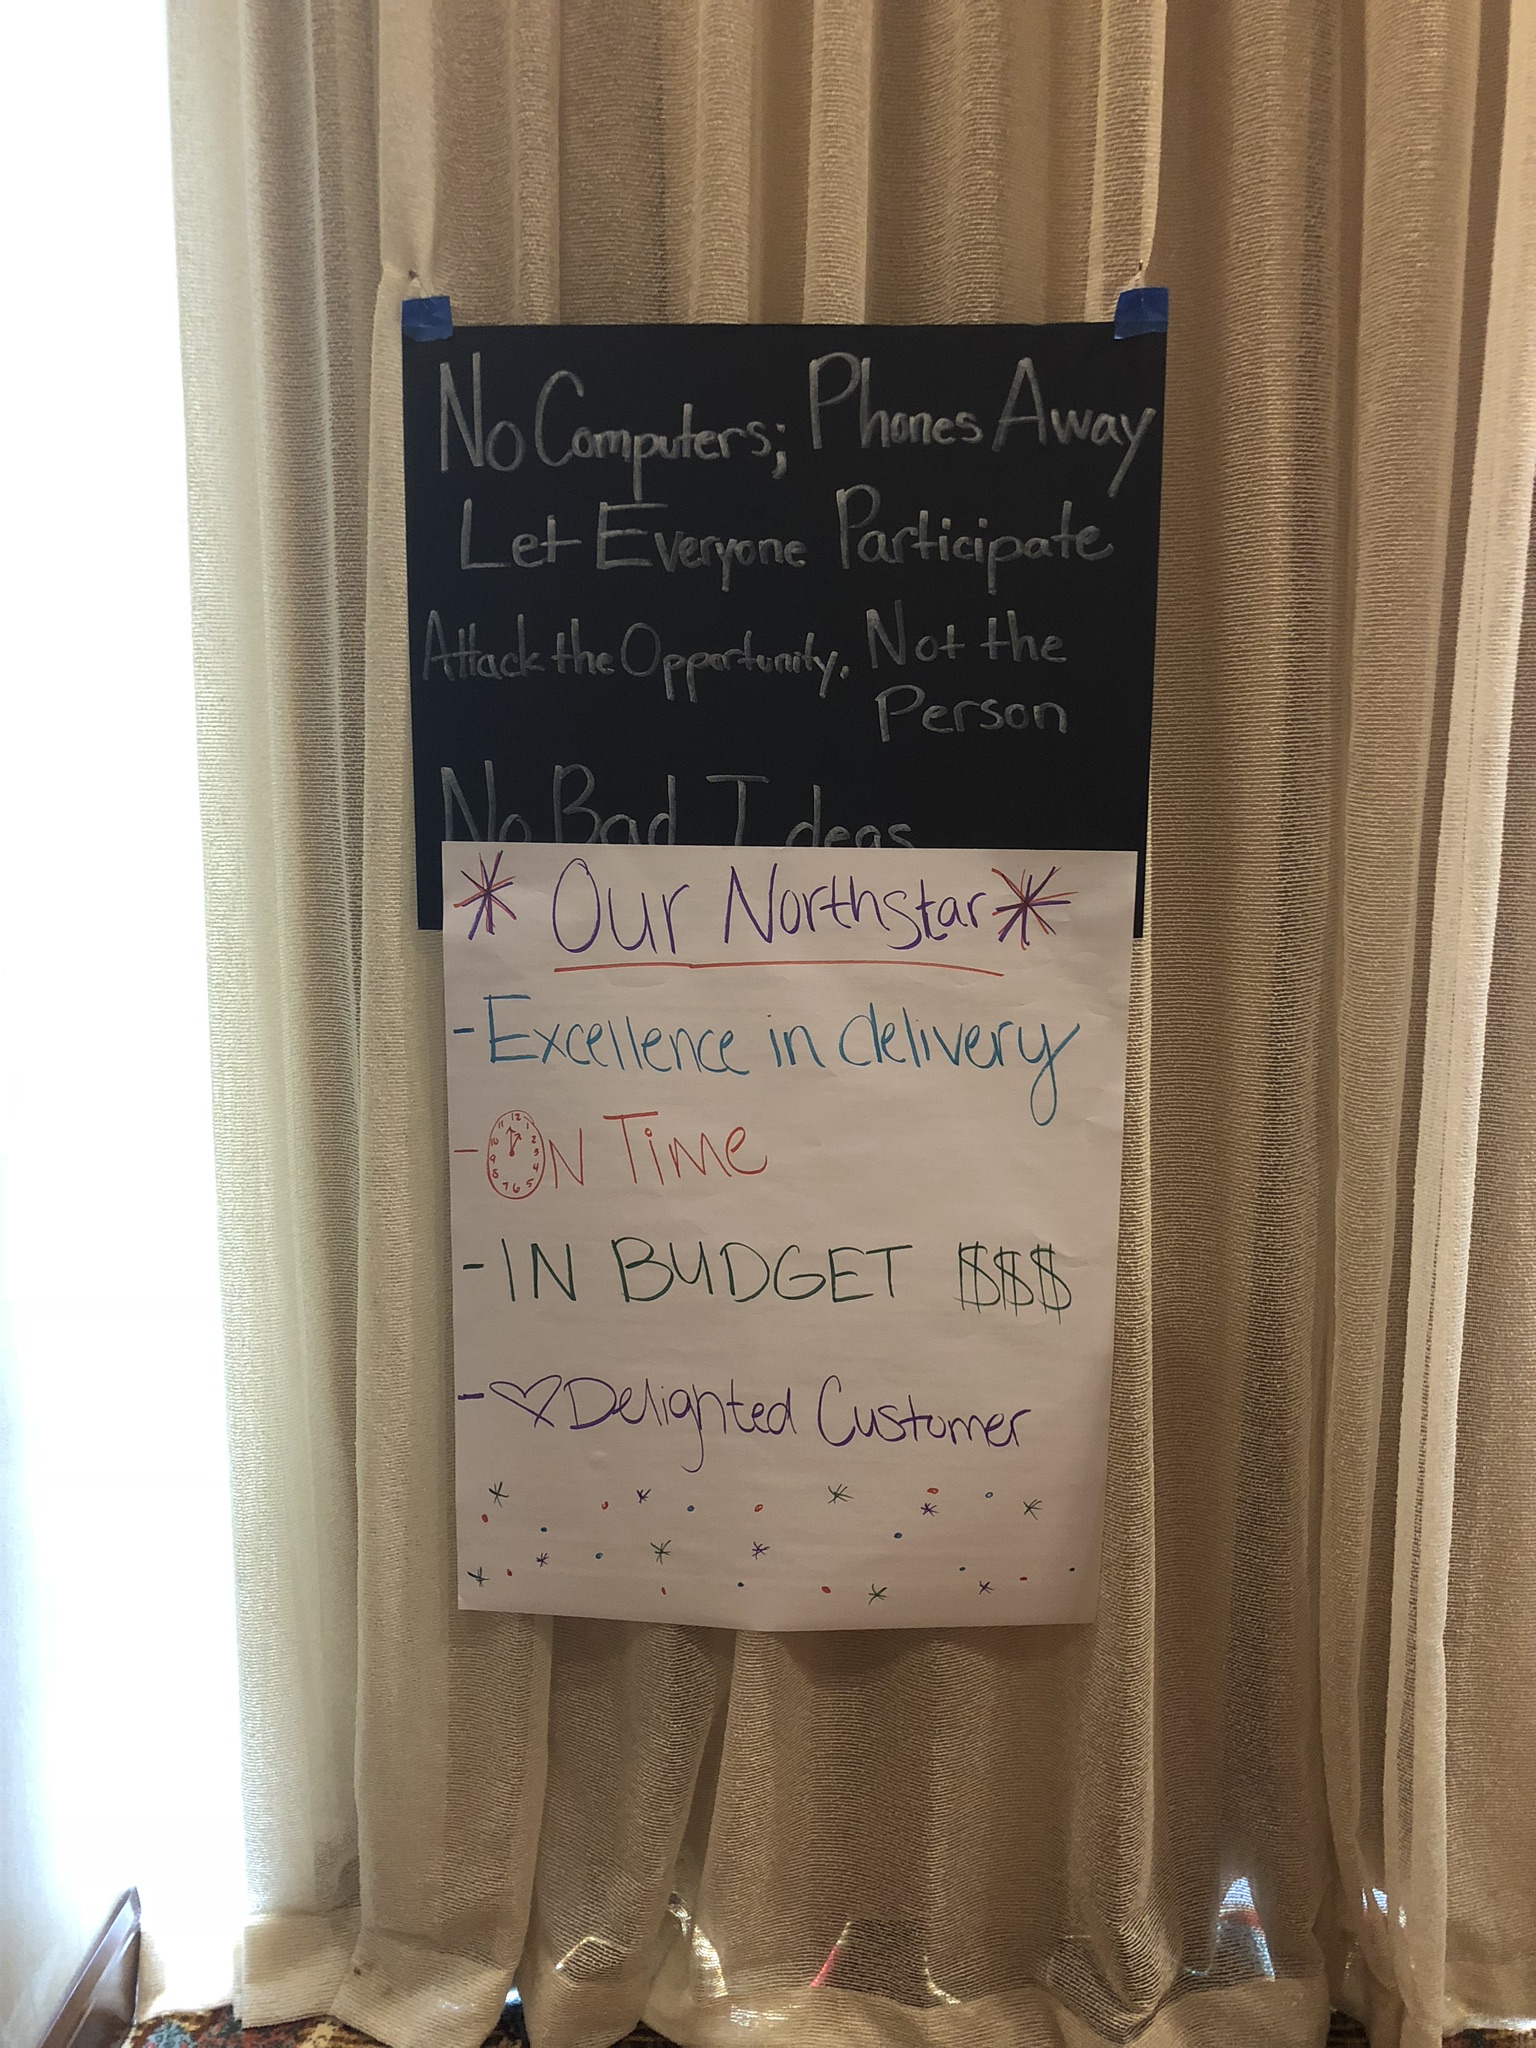 No Computers; Phones Away
Let Everyone Participate
Attack the Opportunity, Not the
Person
No Bad Ideas
* Our Northstar *
- Excellence in delivery
- ON TiME
- IN BUDGET $$$
- ♡ Delighted Customer